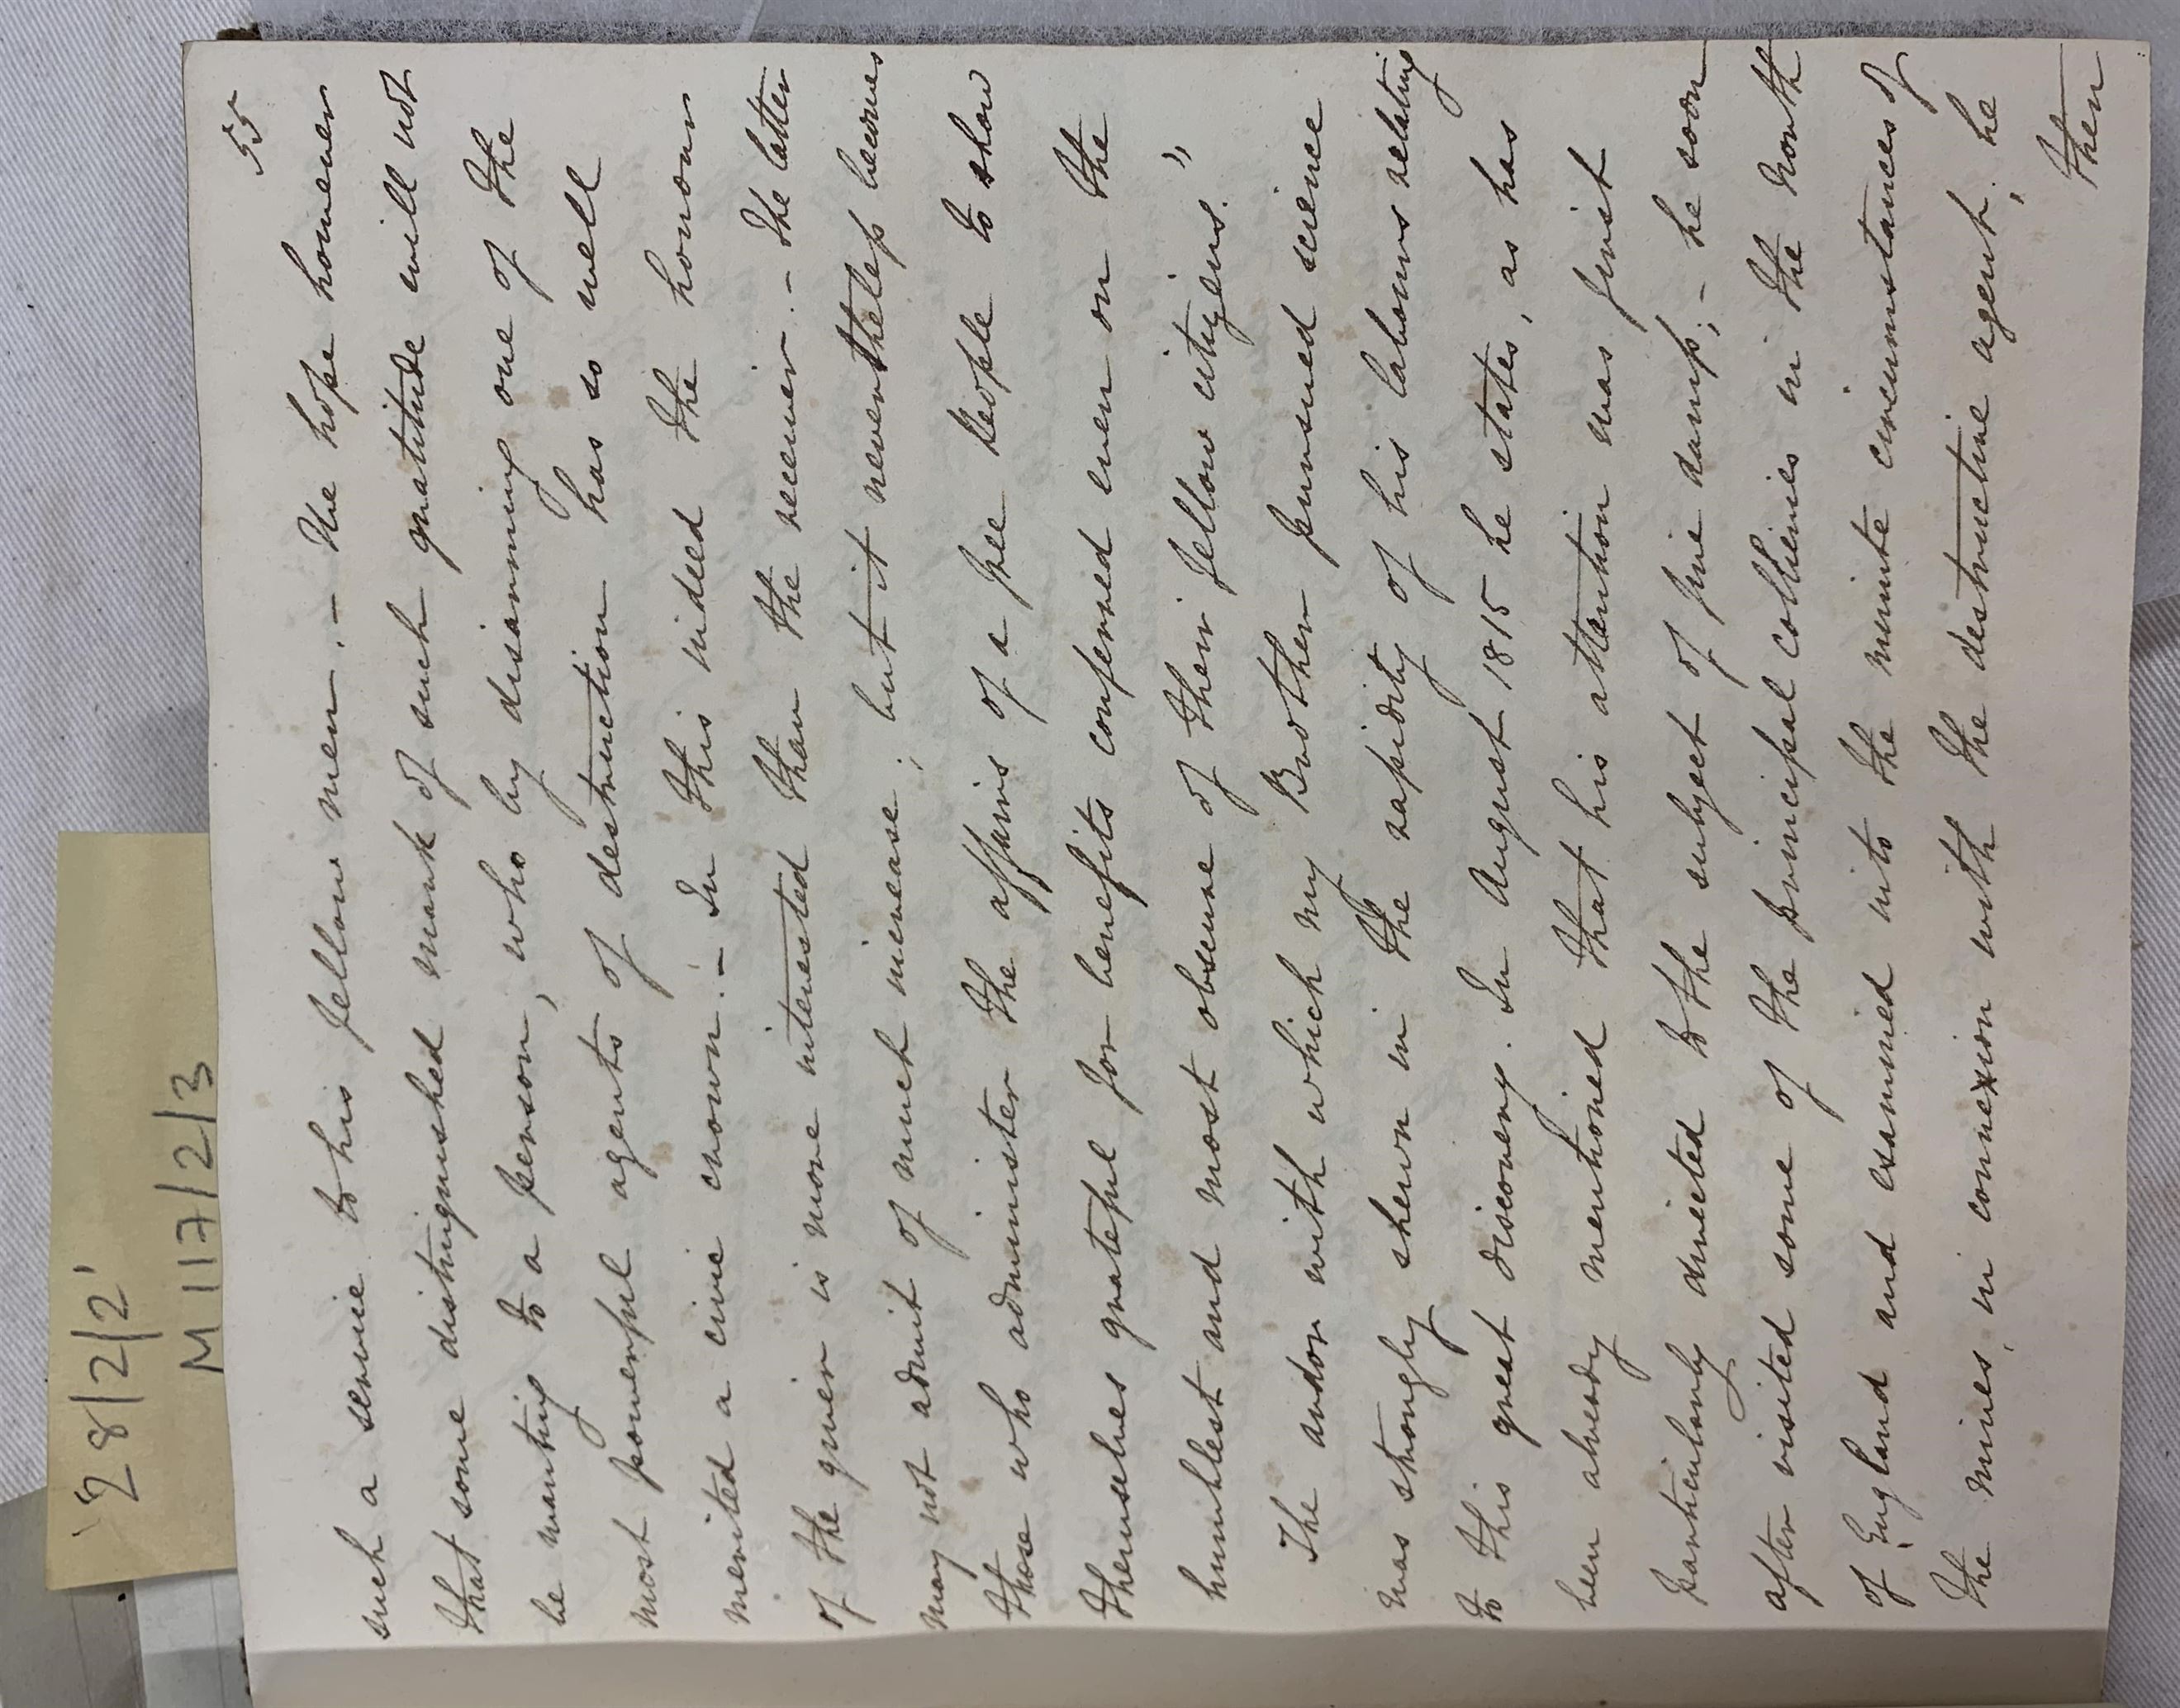 '28/2/2'
M117/2/3
55
such a service to his fellow men. - We hope however
that some distinguished mark of such gratitude will not
be wanting to a person, who by disarming one of the
most powerful agents of destruction has so well
merited a civic crown. - In this indeed the honour
of the giver is more interested than the receiver. - the latter
may not admit of much increase; but it nevertheless becomes
those who administer the affairs of a free people to show
themselves grateful for benefits conferred even on the
humblest and most obscure of their fellow citizens."
The ardor with which my Brother pursued science
was strongly shewn in the rapidity of his labours relating
to this great discovery. In August 1815 he states, as has
been already mentioned that his attention was first
particularly directed to the subject of fire damp; - he soon
after visited some of the principal collieries in the North
of England and examined into the minute circumstances of
the mines, in connexion with the destructive agent; he
then